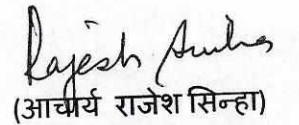 Rajesh Sinha
(आचार्य राजेश सिन्हा)